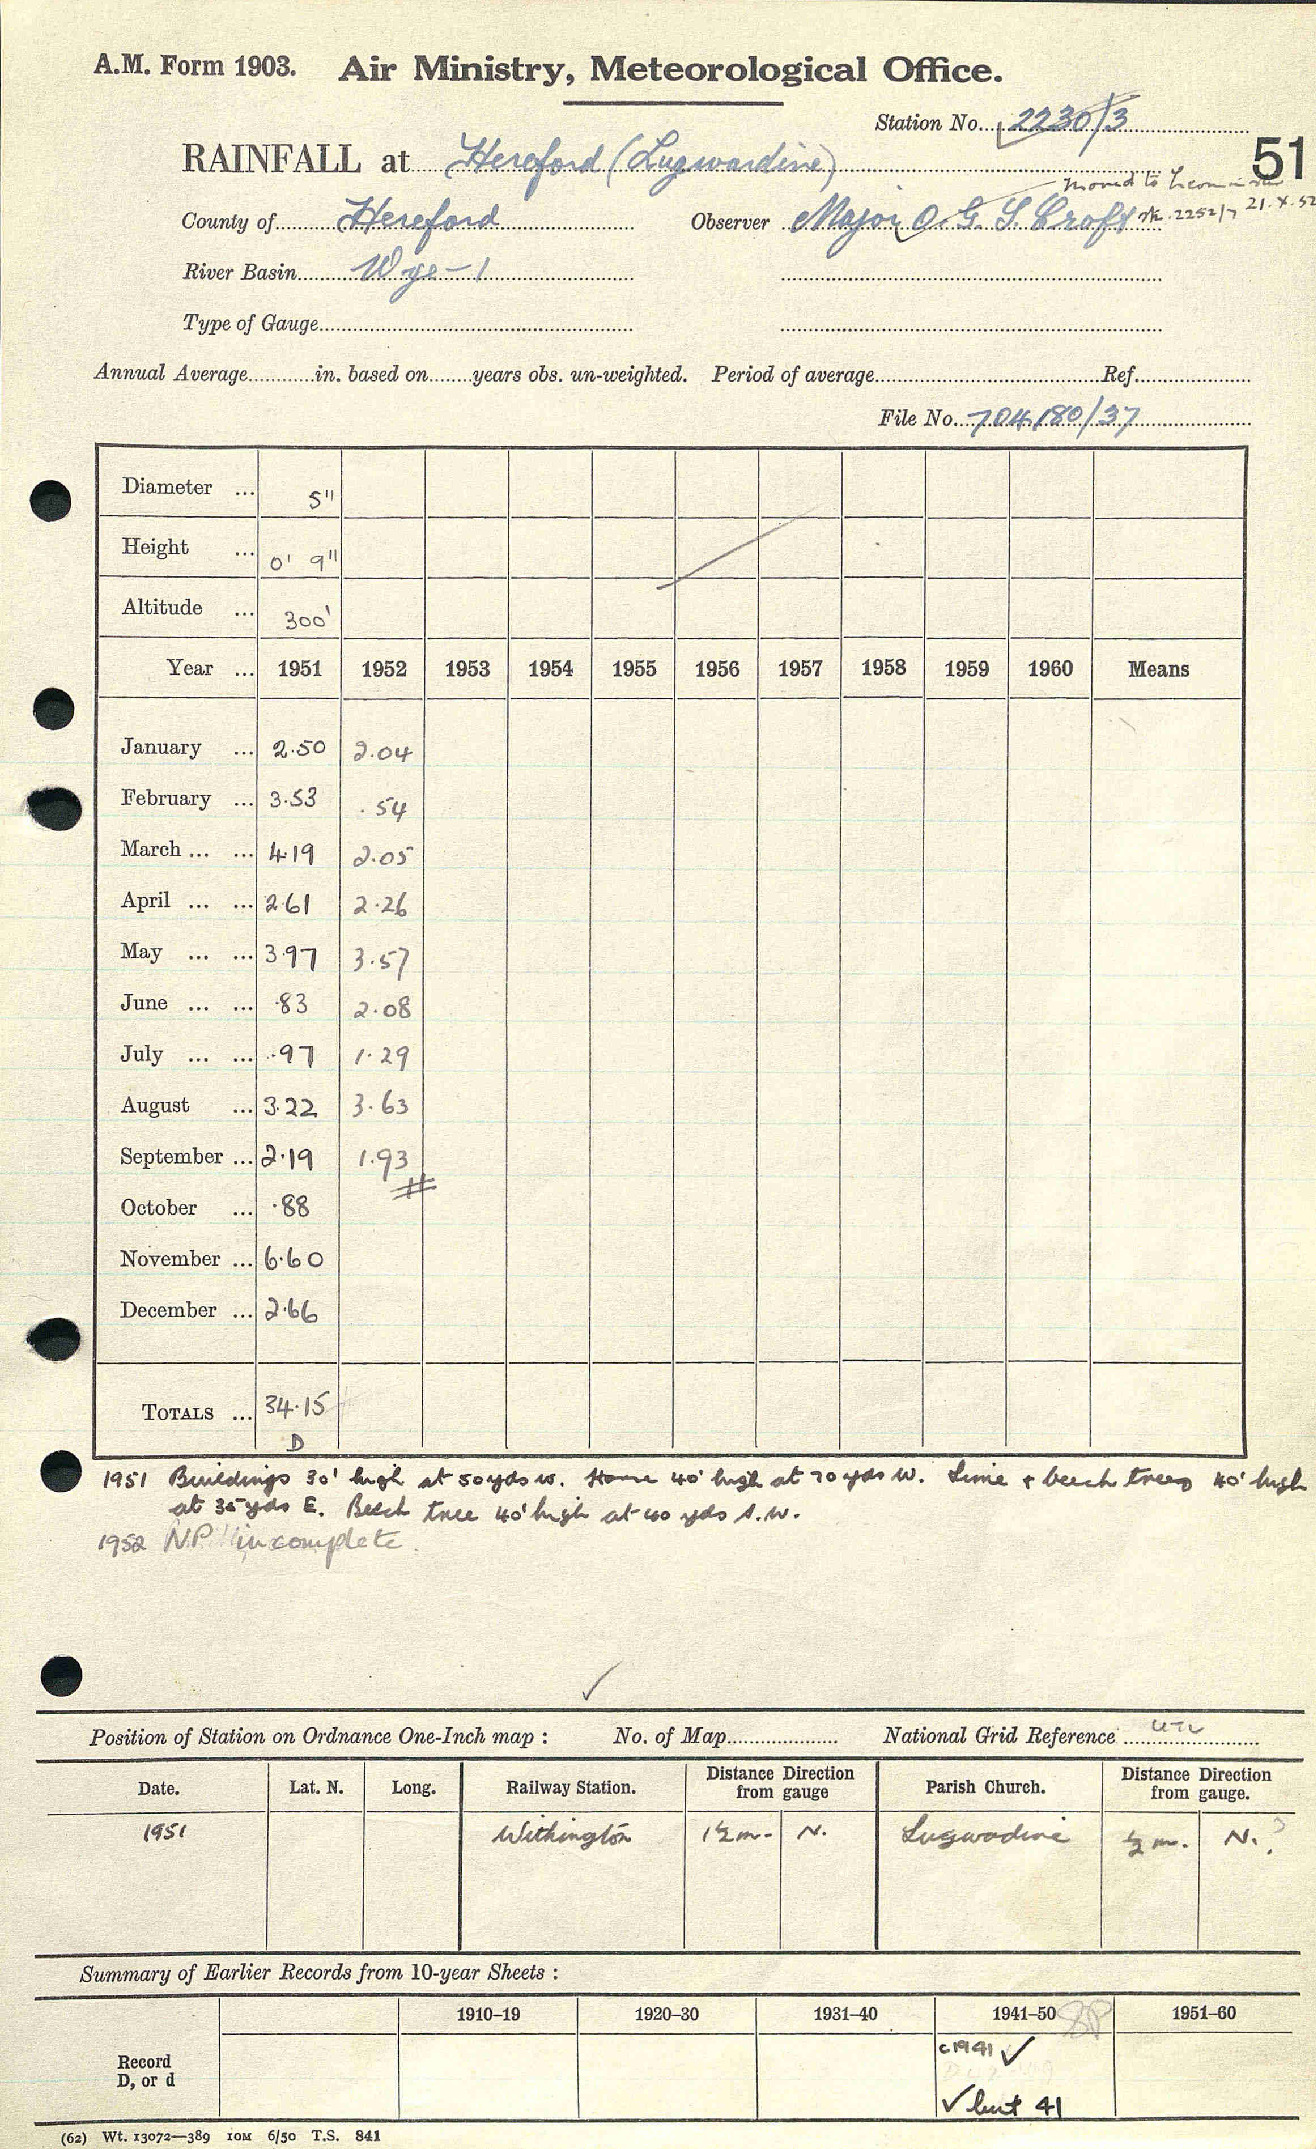 A.M. Form 1903. Air Ministry, Meteorological Office.
Station No. 2230/3
51
RAINFALL at Hereford (Lugwardine)
moved to
County of Hereford Observer Major O. G. S. Croft stn. 2252/7 21.X.52
River Basin Wye-1
Type of Gauge
Annual Average in. based on years obs. un-weighted. Period of average Ref.
File No. 704180/37
Diameter ... 5"
Height ... 0' 9"
Altitude ... 300'
Year ... 1951 1952 1953 1954 1955 1956 1957 1958 1959 1960 Means
January ... 2.50 2.04
February ... 3.53 .54
March ... ... 4.19 2.05
April ... ... 2.61 2.26
May ... ... 3.97 3.57
June ... ... .83 2.08
July ... ... .97 1.29
August ... 3.22 3.63
September ... 2.19 1.93
October ... .88
November ... 6.60
December ... 2.66
TOTALS ... 34.15
D
1951 Buildings 30' high at 50 yds W. House 40' high at 70 yds W. Lime + beech trees 40' high
at 35 yds E. Beech tree 40' high at 40 yds S.W.
1952 NP incomplete.
Position of Station on Ordnance One-Inch map : No. of Map National Grid Reference
Date. Lat. N. Long. Railway Station. Distance Direction from gauge Parish Church. Distance Direction from gauge.
1951 Withington 1½ m. N. Lugwardine ½ m. N. ?
Summary of Earlier Records from 10-year Sheets :
1910–19 1920–30 1931–40 1941–50 1951–60
Record
D, or d
c1941 ✓
✓ but 41
(62) Wt. 13072—389 10M 6/50 T.S. 841